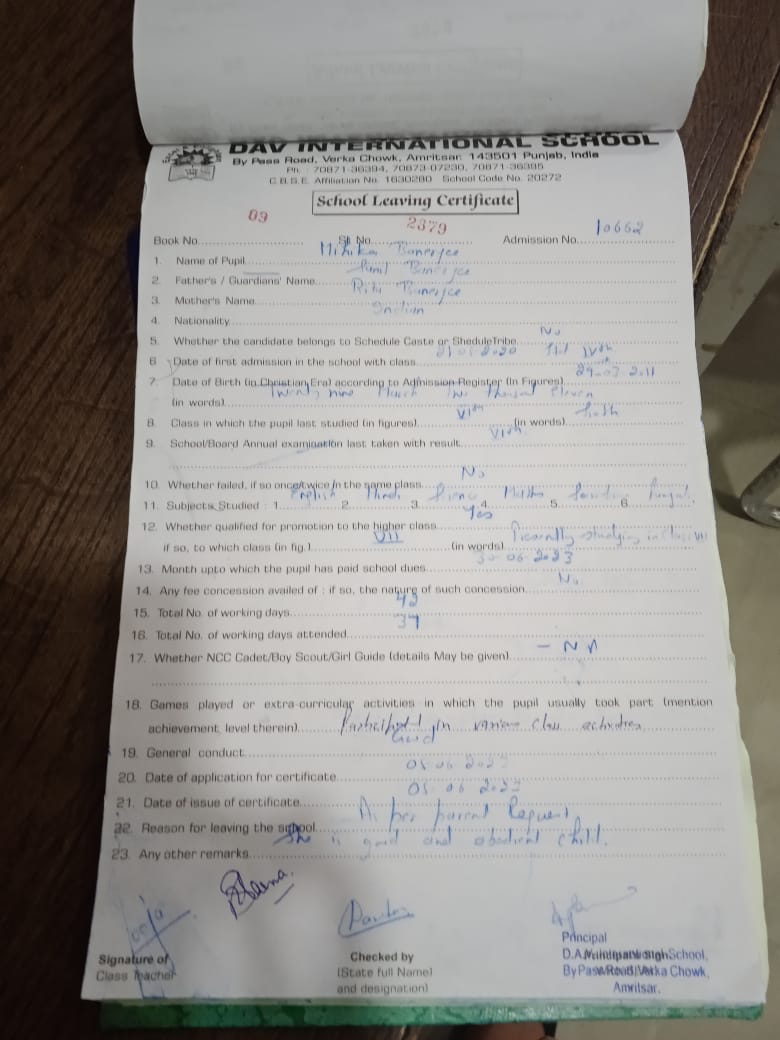 DAV INTERNATIONAL SCHOOL
By Pass Road, Verka Chowk, Amritsar. 143501 Punjab, India
Ph. : 70871-36394, 70873-07230, 70871-36395
C.B.S.E. Affiliation No. 1630280 School Code No. 20272
School Leaving Certificate
Book No. 09 Sll No. 2379 Admission No. 10662
1. Name of Pupil Mihika Banerjee
2. Father's / Guardians' Name Banerjee
3. Mother's Name Banerjee
4. Nationality Indian
5. Whether the candidate belongs to Schedule Caste or SheduleTribe No
6 Date of first admission in the school with class 2020 IVth
7. Date of Birth (in Christian Era) according to Admission Register (In Figures) 29-03-2011
(in words) Twenty nine March Two thousand Eleven
8. Class in which the pupil last studied (in figures) VIth (in words) Sixth
9. School/Board Annual examination last taken with result VIth
10. Whether failed, if so once/twice in the same class No
11. Subjects Studied : 1 English 2 Hindi 3 Science 4 Maths 5 6
12. Whether qualified for promotion to the higher class Yes
if so, to which class (in fig.) VII (in words) studying in class VII
13. Month upto which the pupil has paid school dues 30-06-2023
14. Any fee concession availed of : if so, the nature of such concession No
15. Total No. of working days 42
16. Total No. of working days attended 37
17. Whether NCC Cadet/Boy Scout/Girl Guide (details May be given)
18. Games played or extra-curricular activities in which the pupil usually took part (mention
achievement level therein) in various class activities
19. General conduct Good
20. Date of application for certificate 05-06-2023
21. Date of issue of certificate 05-06-2023
22. Reason for leaving the school As per parent Request
23. Any other remarks She is good and obedient child.
Signature of
Class Teacher
Checked by
(State full Name)
and designation)
Principal
D.A.V. School,
By Pass Road, Verka Chowk,
Amritsar.